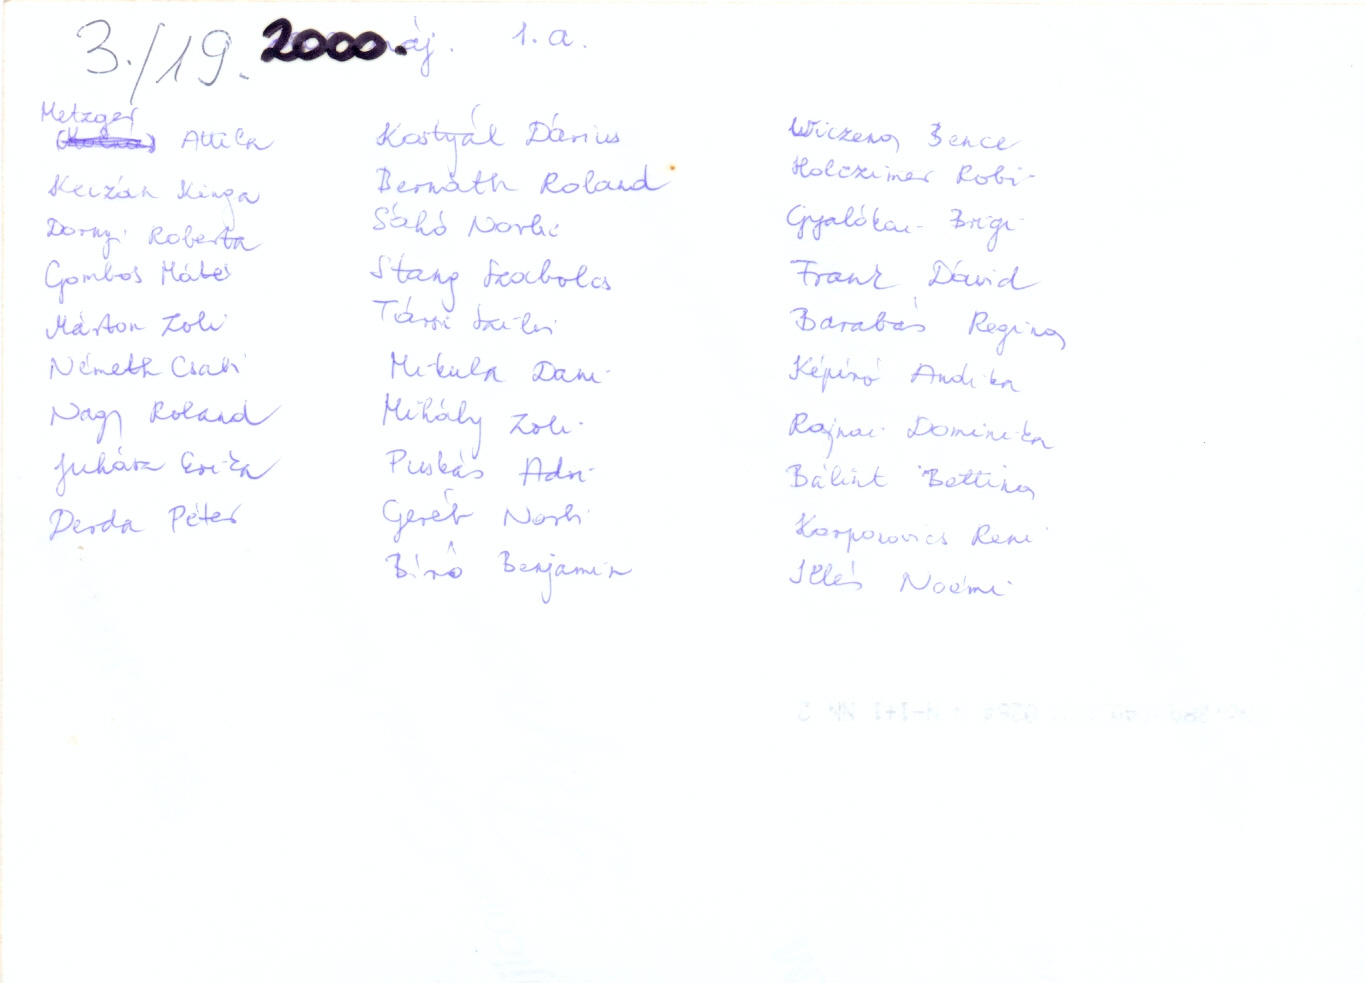 3./19. 2000. máj. 1. a.
Metzger
Attila
Keizán Kinga
Dornyi Roberta
Gombos Máté
Márton Zoli
Németh Csabi
Nagy Roland
Juhász Erika
Derda Péter
Kostyál Dárius
Bernáth Roland
Sákó Norbi
Stang Szabolcs
Társi Szilvi
Mikula Dani
Mihály Zoli
Puskás Adri
Geréb Norbi
Bíró Benjamin
Wiczena Bence
Holczimer Robi
Gyalókai Brigi
Frank Dávid
Barabás Regina
Képíró Andika
Rajnai Dominika
Bálint Bettina
Karpovics Reni
Illés Noémi